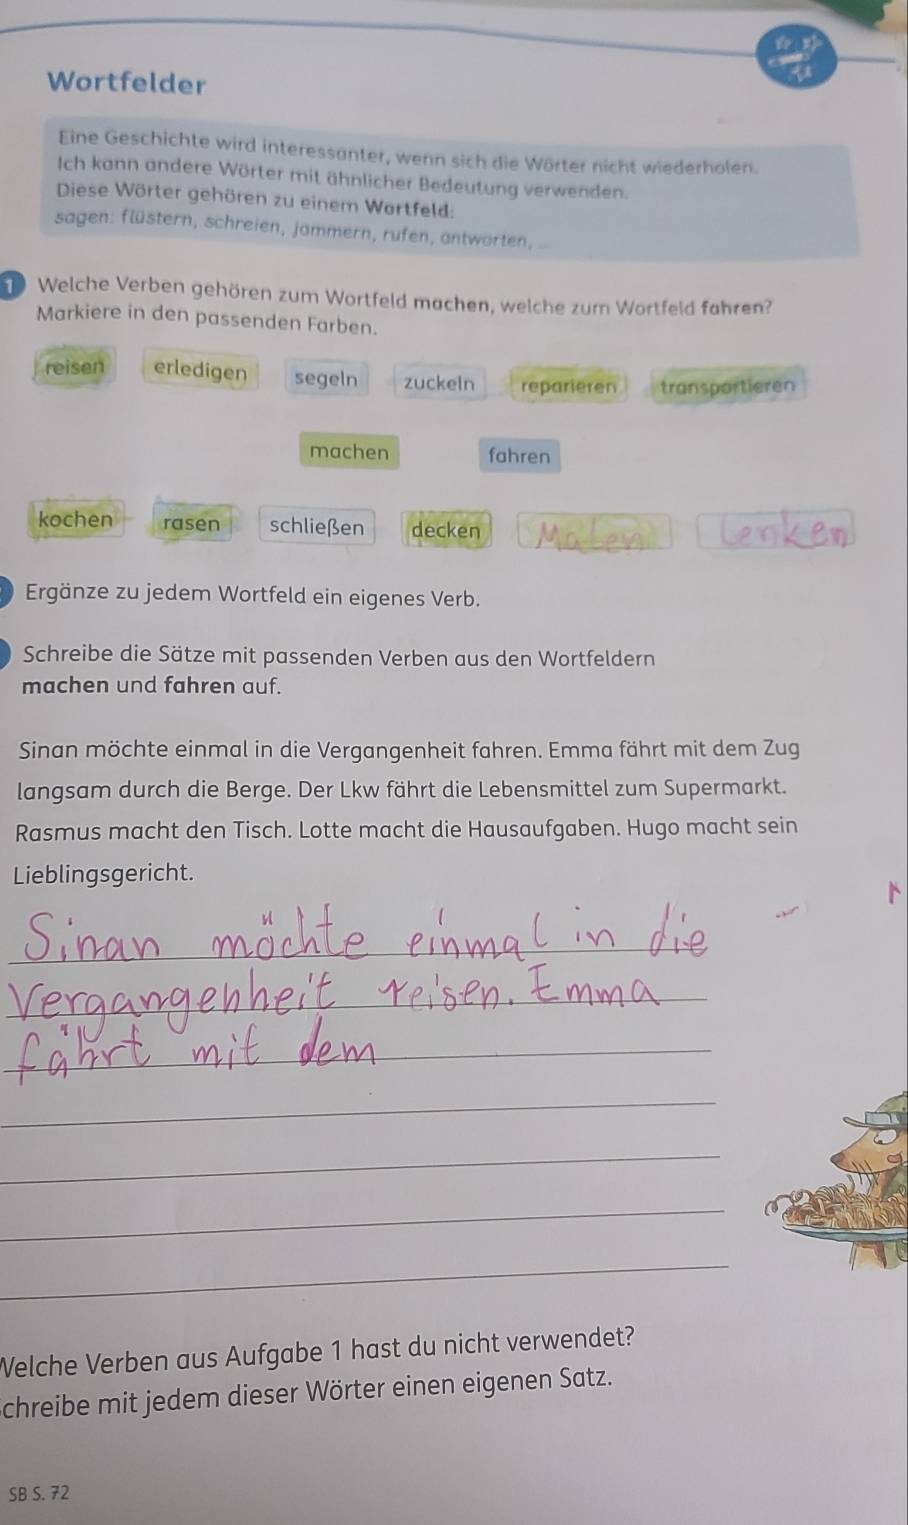 Wortfelder
Eine Geschichte wird interessanter, wenn sich die Wörter nicht wiederholen.
Ich kann andere Wörter mit ähnlicher Bedeutung verwenden.
Diese Wörter gehören zu einem Wortfeld:
sagen: flüstern, schreien, jammern, rufen, antworten, ...
1 Welche Verben gehören zum Wortfeld machen, welche zum Wortfeld fahren?
Markiere in den passenden Farben.
reisen erledigen segeln zuckeln reparieren transportieren
machen fahren
kochen rasen schließen decken Malen Lenken
Ergänze zu jedem Wortfeld ein eigenes Verb.
Schreibe die Sätze mit passenden Verben aus den Wortfeldern
machen und fahren auf.
Sinan möchte einmal in die Vergangenheit fahren. Emma fährt mit dem Zug
langsam durch die Berge. Der Lkw fährt die Lebensmittel zum Supermarkt.
Rasmus macht den Tisch. Lotte macht die Hausaufgaben. Hugo macht sein
Lieblingsgericht.
Sinan möchte einmal in die
Vergangenheit reisen. Emma
fährt mit dem
Welche Verben aus Aufgabe 1 hast du nicht verwendet?
chreibe mit jedem dieser Wörter einen eigenen Satz.
SB S. 72